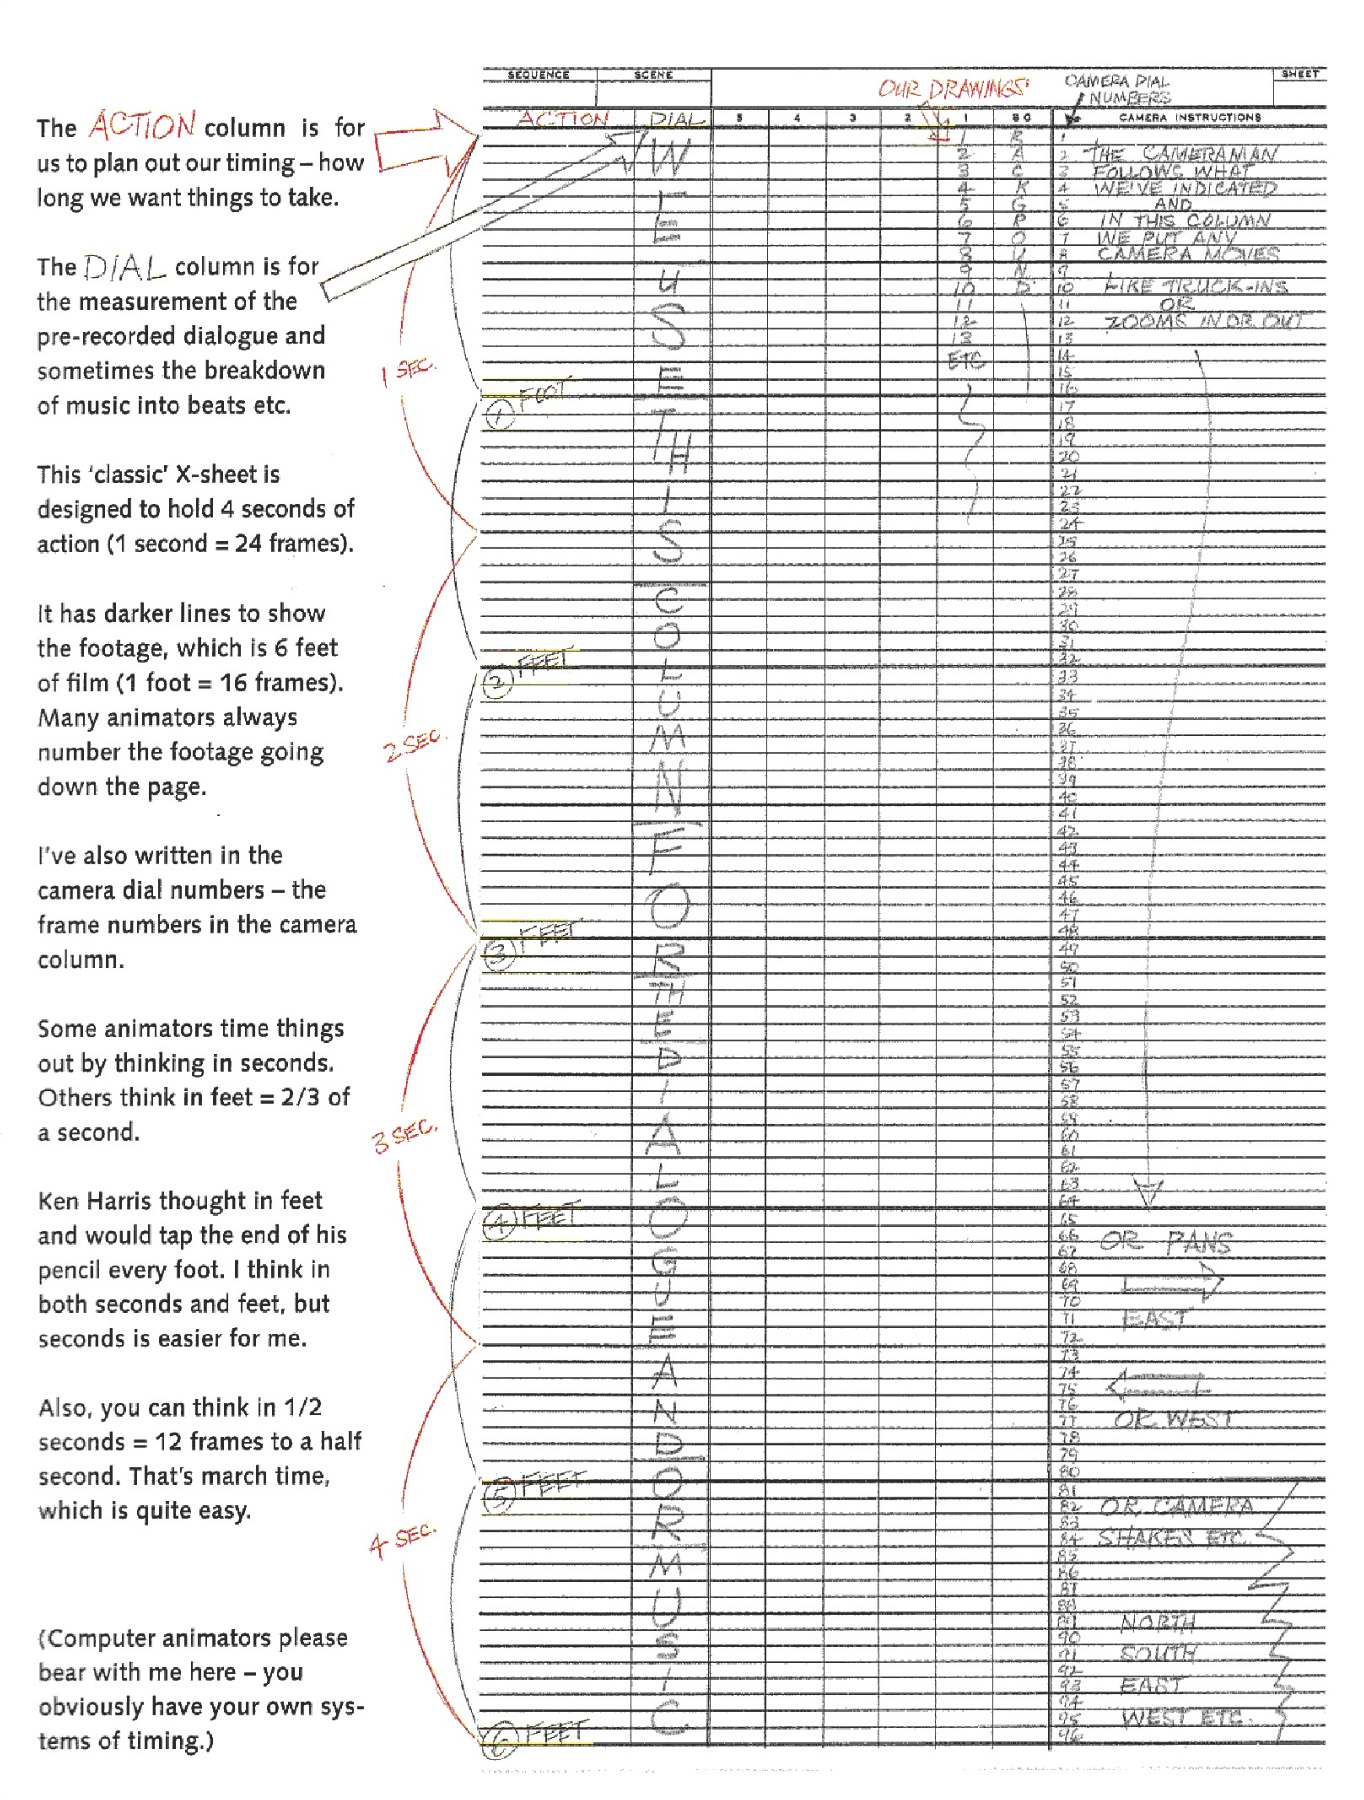 The ACTION column is for
us to plan out our timing – how
long we want things to take.
The DIAL column is for
the measurement of the
pre-recorded dialogue and
sometimes the breakdown
of music into beats etc.
This ‘classic’ X-sheet is
designed to hold 4 seconds of
action (1 second = 24 frames).
It has darker lines to show
the footage, which is 6 feet
of film (1 foot = 16 frames).
Many animators always
number the footage going
down the page.
I’ve also written in the
camera dial numbers – the
frame numbers in the camera
column.
Some animators time things
out by thinking in seconds.
Others think in feet = 2/3 of
a second.
Ken Harris thought in feet
and would tap the end of his
pencil every foot. I think in
both seconds and feet, but
seconds is easier for me.
Also, you can think in 1/2
seconds = 12 frames to a half
second. That’s march time,
which is quite easy.
(Computer animators please
bear with me here – you
obviously have your own sys-
tems of timing.)
1 SEC.
2 SEC.
3 SEC.
4 SEC.
SEQUENCE
SCENE
OUR DRAWINGS
CAMERA DIAL
NUMBERS
SHEET
ACTION
DIAL
5
4
3
2
1
BG
CAMERA INSTRUCTIONS
1 FOOT
2 FEET
3 FEET
4 FEET
5 FEET
6 FEET
WE USE THIS COLUMN FOR THE DIALOGUE AND OR MUSIC
1
2
3
4
5
6
7
8
9
10
11
12
13
ETC
BACKGROUND
1
2
3
4
5
6
7
8
9
10
11
12
13
14
15
16
17
18
19
20
21
22
23
24
25
26
27
28
29
30
31
32
33
34
35
36
37
38
39
40
41
42
43
44
45
46
47
48
49
50
51
52
53
54
55
56
57
58
59
60
61
62
63
64
65
66
67
68
69
70
71
72
73
74
75
76
77
78
79
80
81
82
83
84
85
86
87
88
89
90
91
92
93
94
95
96
THE CAMERAMAN
FOLLOWS WHAT
WE'VE INDICATED
AND
IN THIS COLUMN
WE PUT ANY
CAMERA MOVES
LIKE TRUCK-INS
OR
ZOOMS IN OR OUT
OR PANS
EAST
OR WEST
OR CAMERA
SHAKES ETC.
NORTH
SOUTH
EAST
WEST ETC.